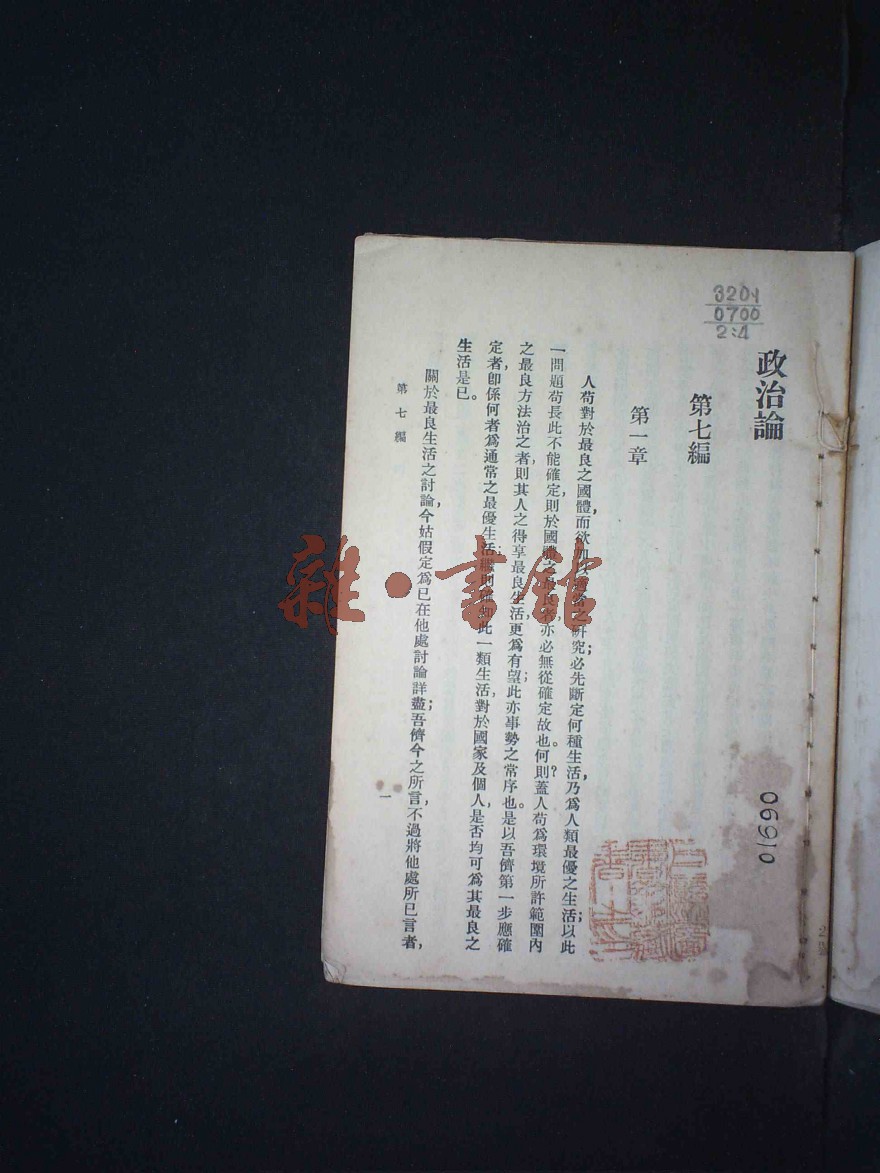 3201
0700
2:4
政治論
第七編
第一章
人苟對於最良之國體，而欲加以適當之研究；必先斷定何種生活，乃爲人類最優之生活；以此
一問題苟長此不能確定，則於國體之最良者，亦必無從確定故也。何則？蓋人苟爲環境所許範圍內
之最良方法治之者，則其人之得享最良生活，更爲有望；此亦事勢之常序也。是以吾儕第一步應確
定者，卽係何者爲通常之最優生活；繼則確知此一類生活，對於國家及個人，是否均可爲其最良之
生活是已。
關於最良生活之討論，今姑假定爲已在他處討論詳盡；吾儕今之所言，不過將他處所已言者，
第七編
一
01990
雜·書館